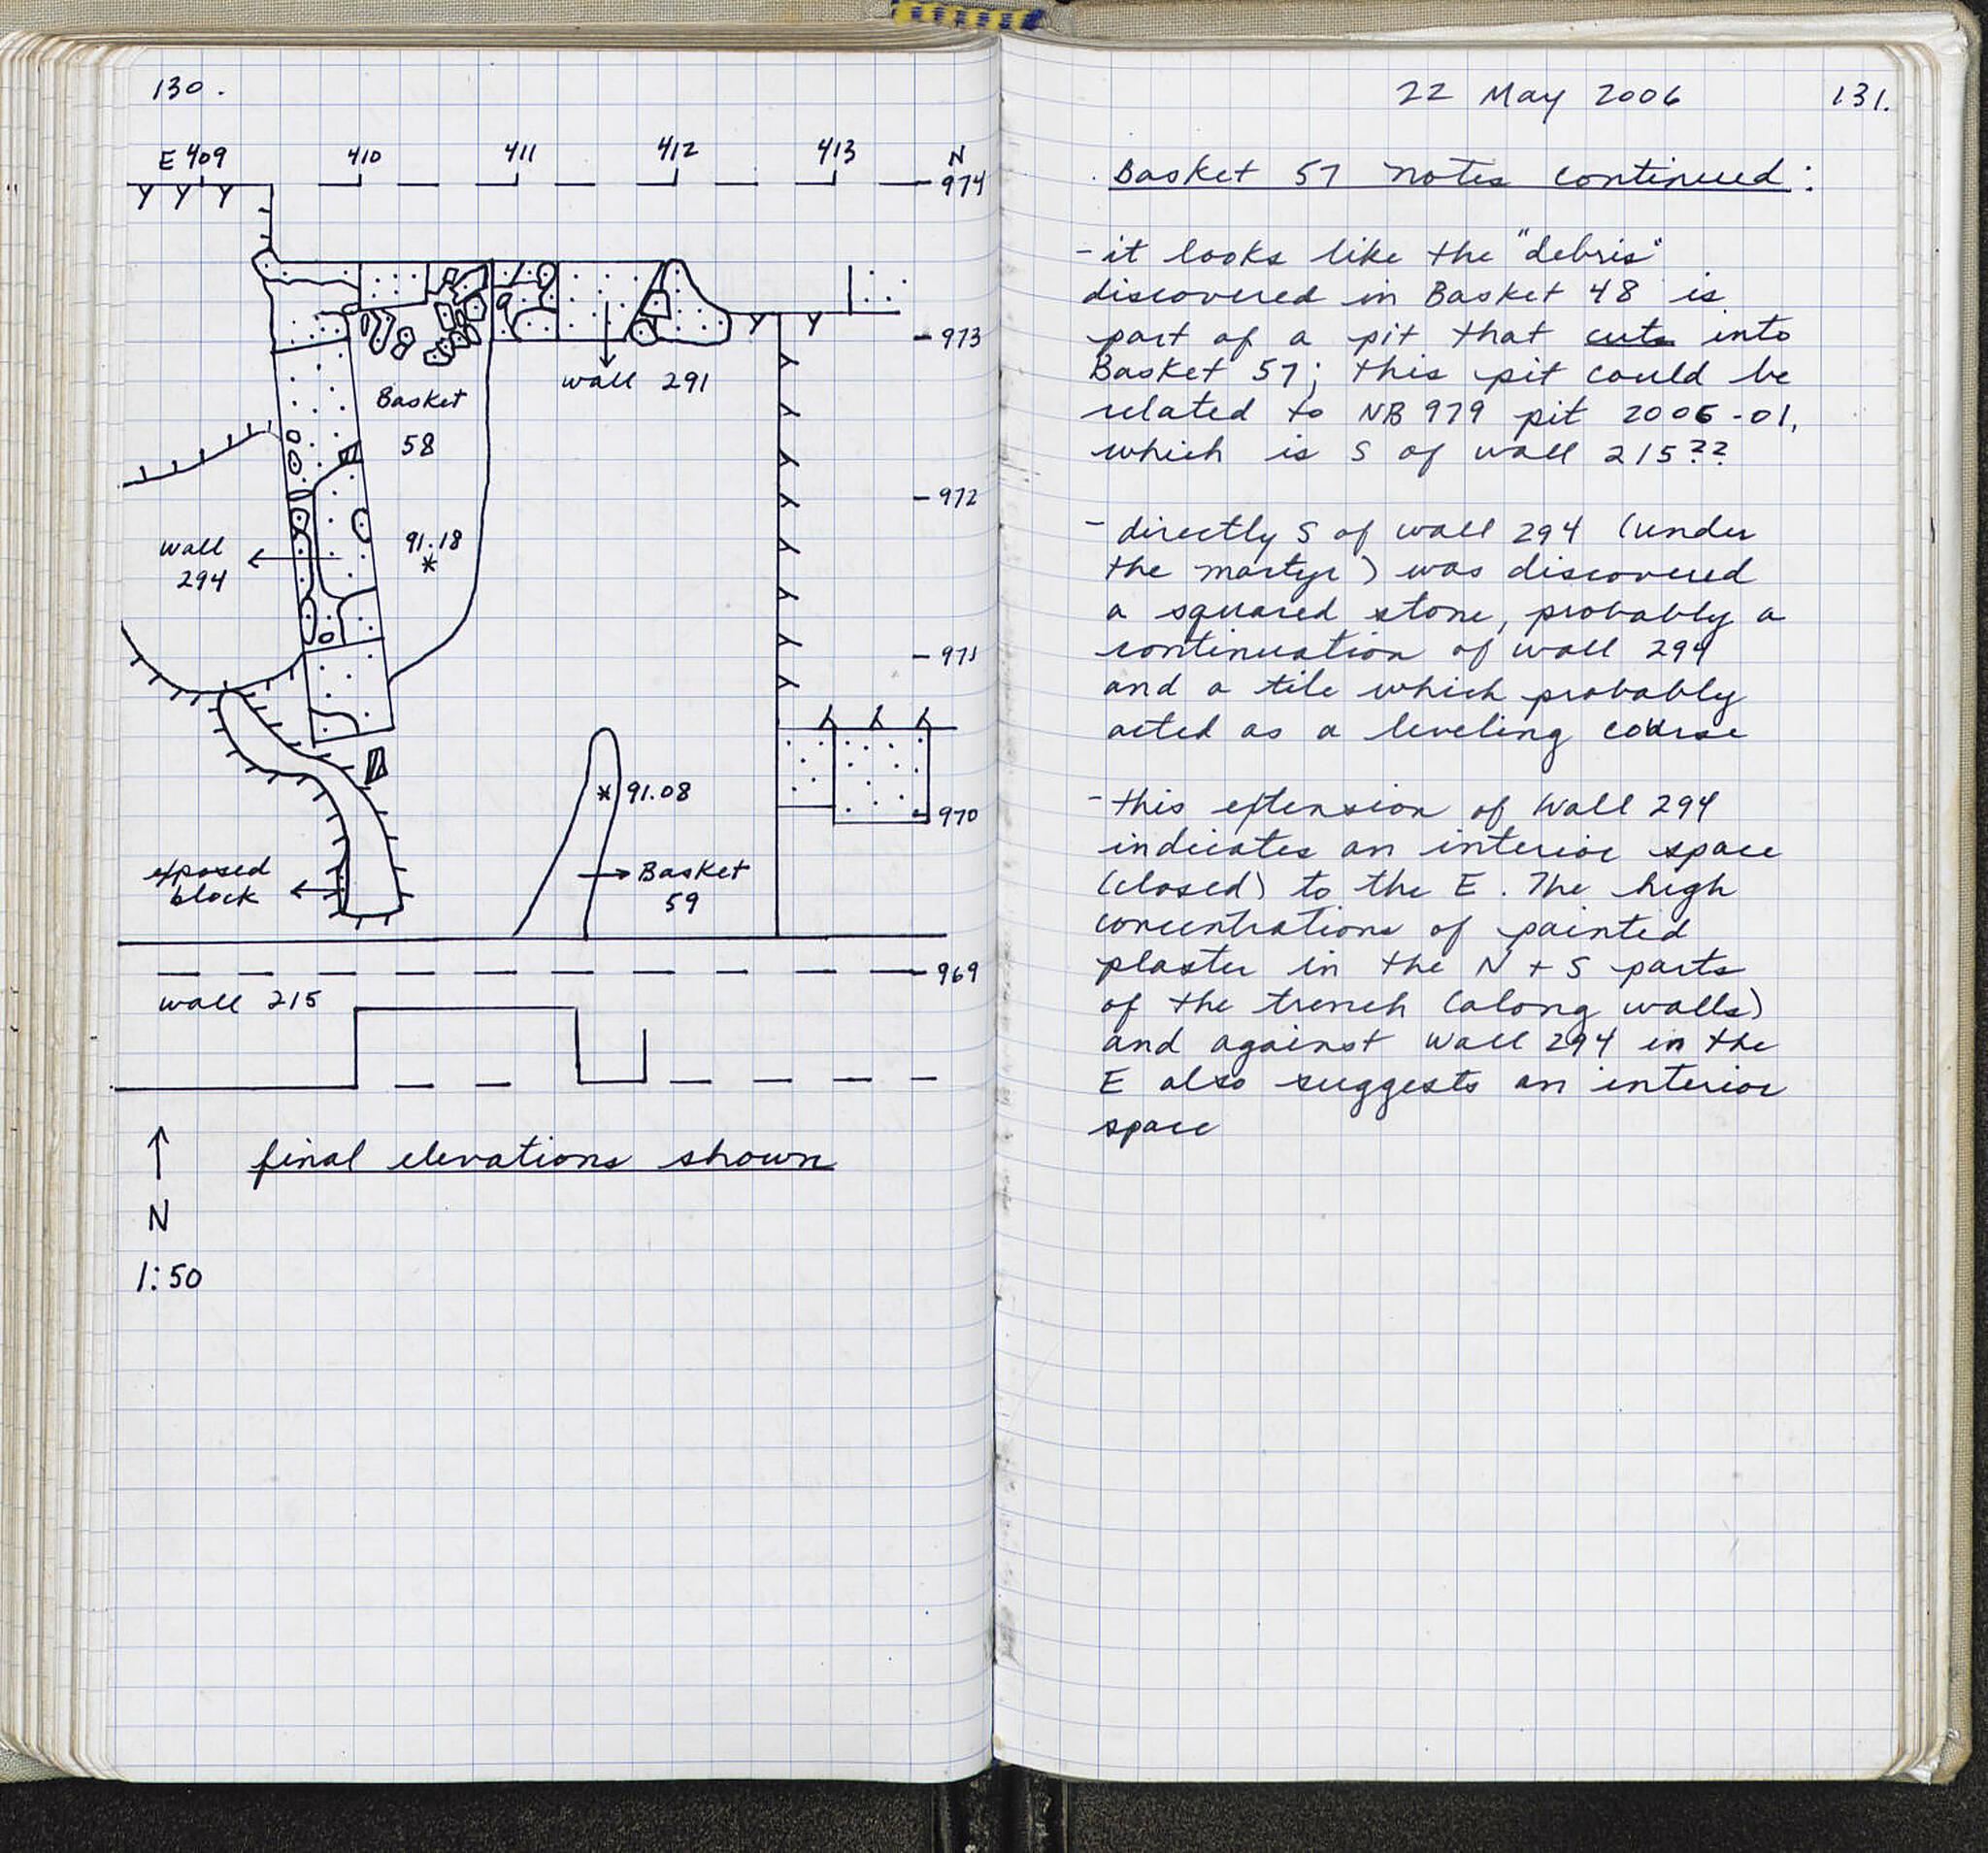 130.
E 409 410 411 412 413 N
974
973
wall 291
Basket
58
972
wall
294
91.18
*
971
* 91.08
970
exposed
block
Basket
59
969
wall 215
final elevations shown
N
1:50
22 May 2006 131.
Basket 57 notes continued:
- it looks like the "debris"
discovered in Basket 48 is
part of a pit that cuts into
Basket 57; this pit could be
related to NB 979 pit 2006-01,
which is S of wall 215??
- directly S of wall 294 (under
the martyr) was discovered
a squared stone, probably a
continuation of wall 294
and a tile which probably
acted as a leveling course
- this extension of Wall 294
indicates an interior space
(closed) to the E. The high
concentrations of painted
plaster in the N + S parts
of the trench (along walls)
and against Wall 294 in the
E also suggests an interior
space